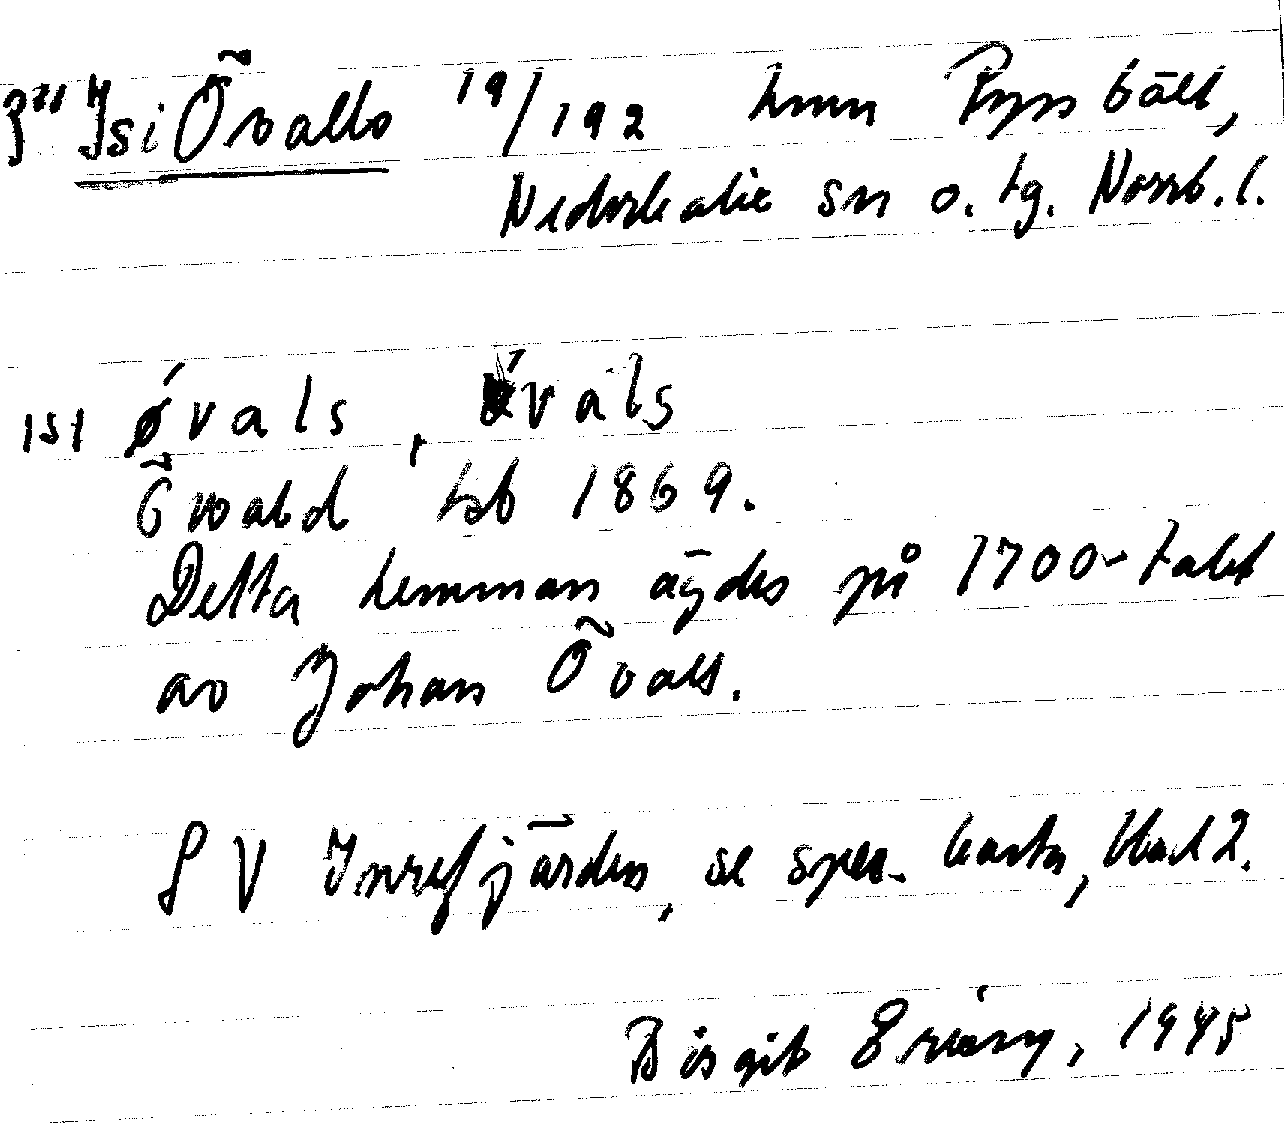 Isi Övalls 19/192 hmn Ryssbält,
Nederkalix sn o. tg. Norrb. l.
isi øvals, vals
Öwald tsb 1869.
Detta hemman ägdes på 1700-talet
av Johan Övall.
S V Inrefjärden, se spec. karta, blad 2.
Birgit 1945